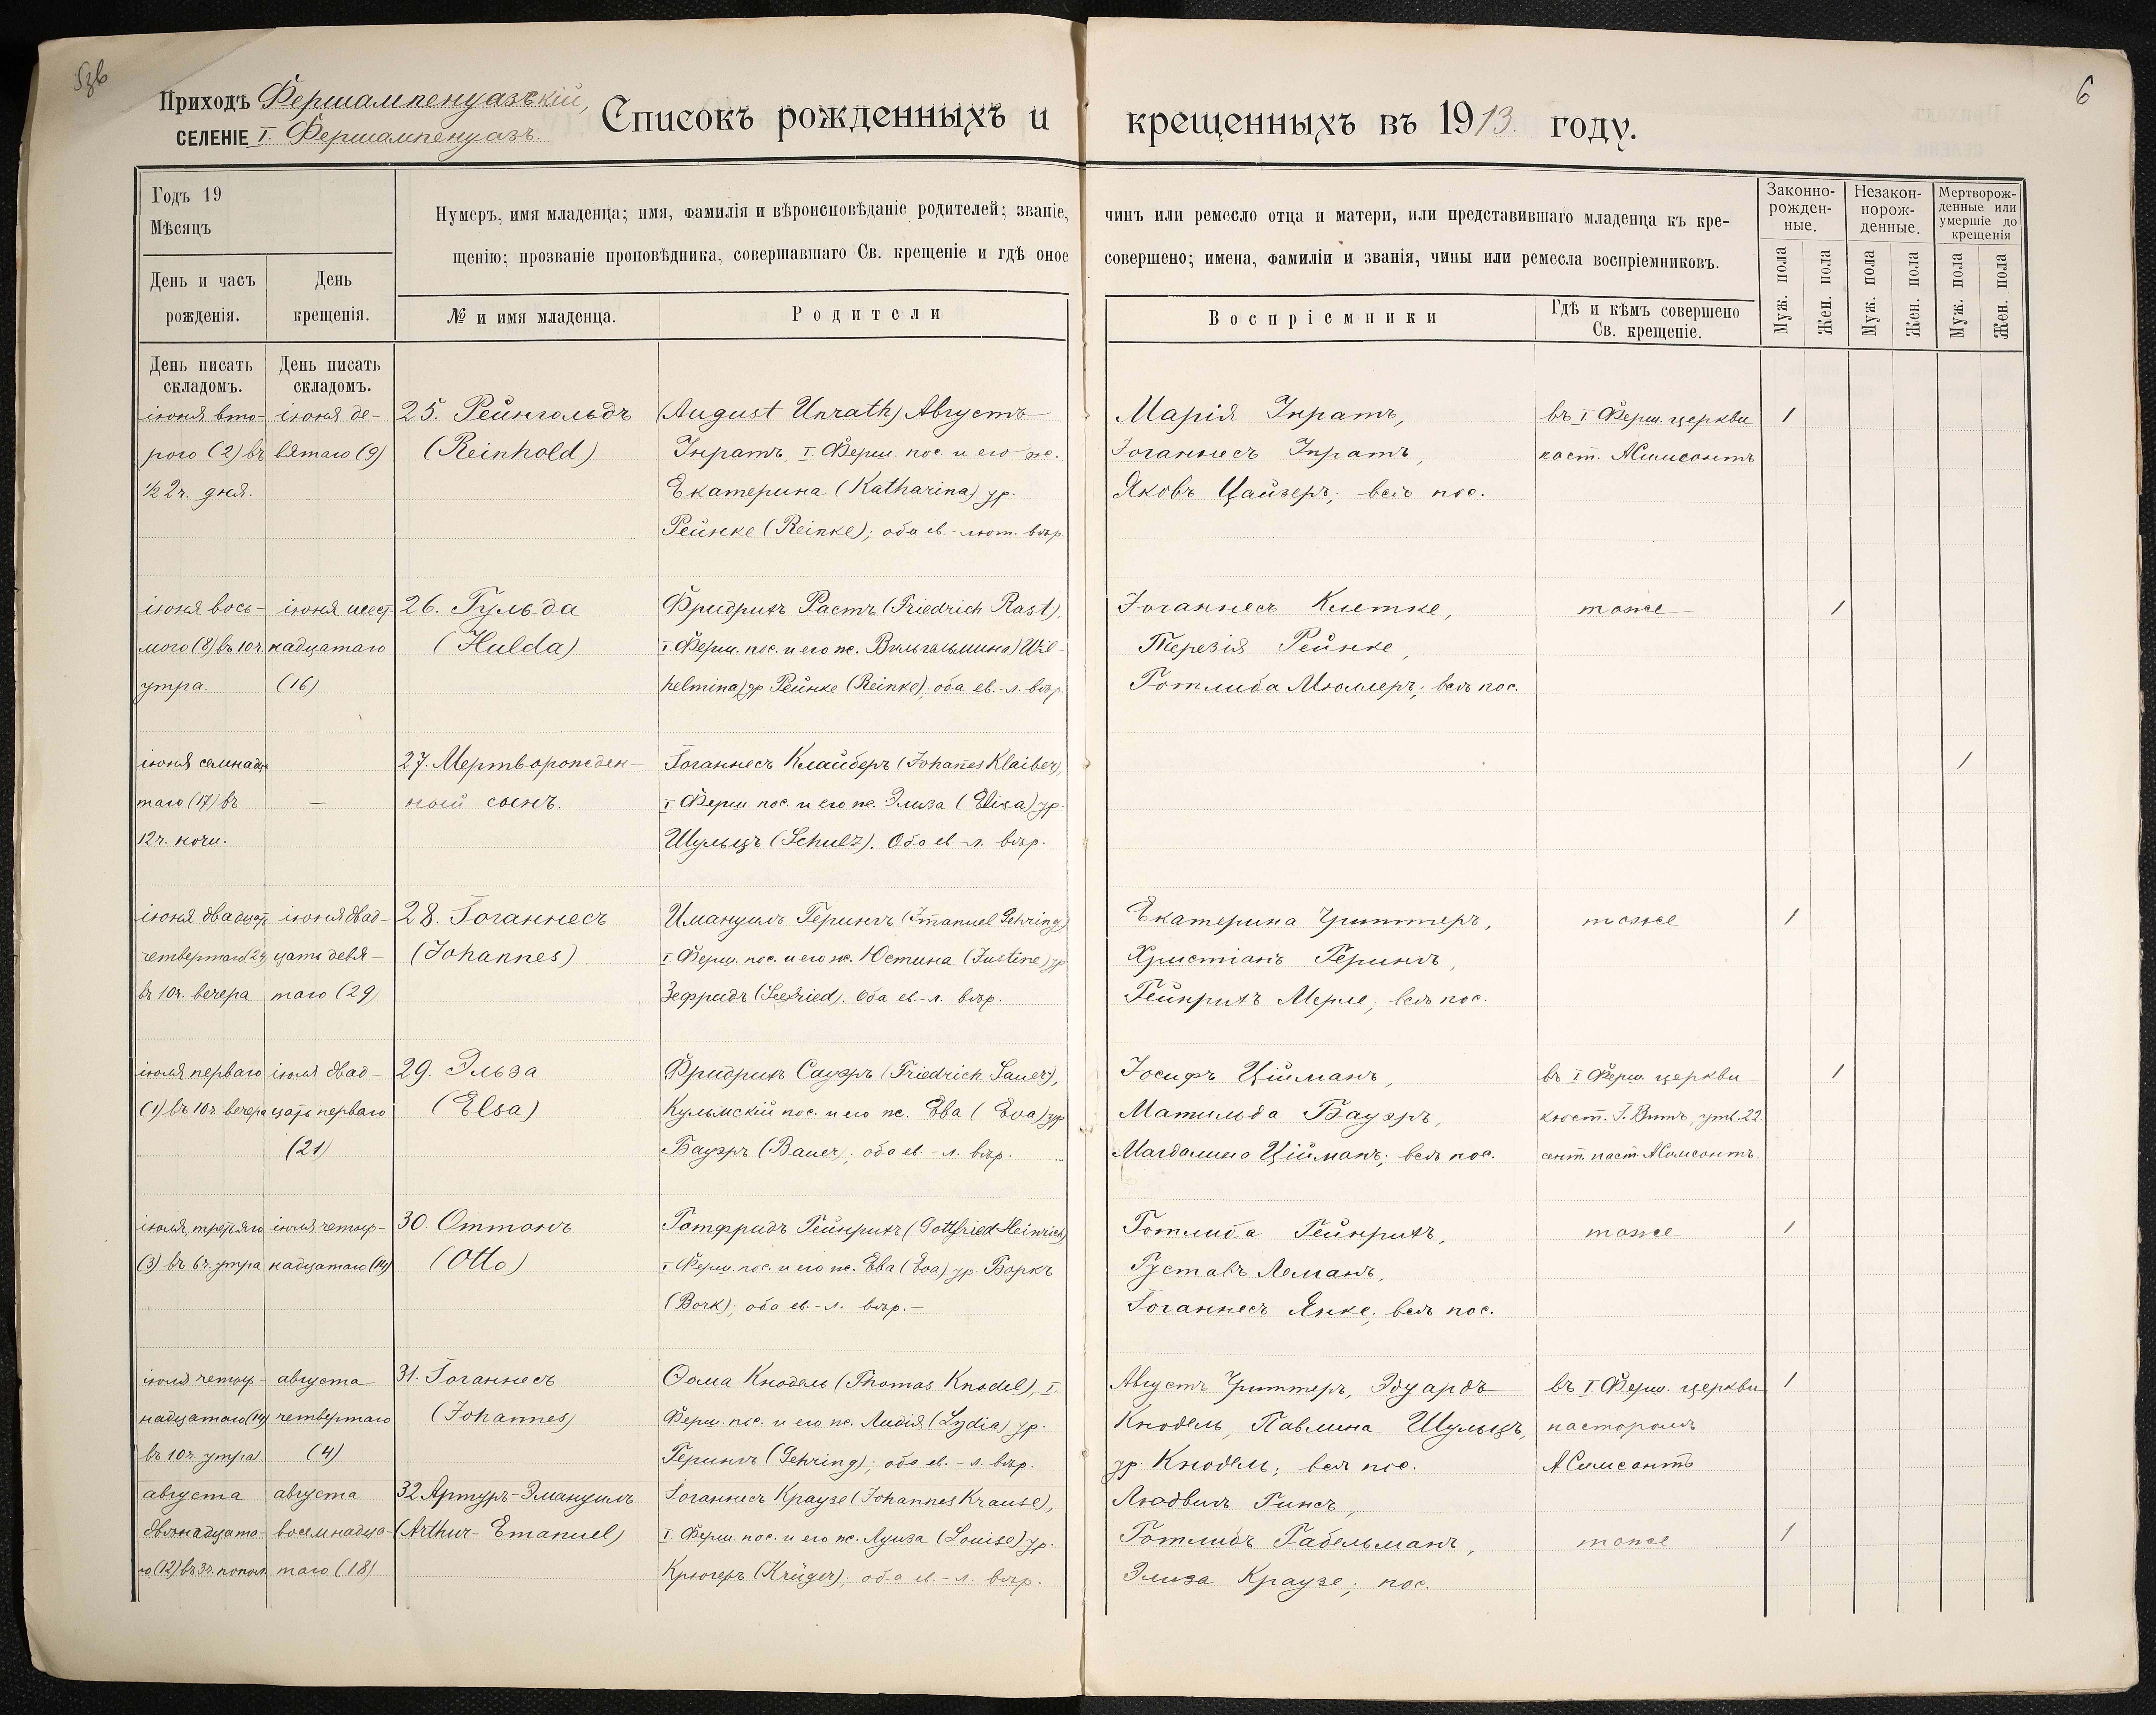 6
Приходъ Фершампенуазскій,
СЕЛЕНІЕ I. Фершампенуазъ.
Списокъ рожденныхъ и крещенныхъ въ 1913. году.
Годъ 19
Мѣсяцъ
День и часъ рожденія.
День крещенія.
Нумеръ, имя младенца; имя, фамилія и вѣроисповѣданіе родителей; званіе, чинъ или ремесло отца и матери, или представившаго младенца къ кре-
щенію; прозваніе проповѣдника, совершавшаго Св. крещеніе и гдѣ оное совершено; имена, фамиліи и званія, чины или ремесла воспріемниковъ.
№ и имя младенца.
Родители
Воспріемники
Гдѣ и кѣмъ совершено
Св. крещеніе.
Законно-
рожден-
ные.
Незакон-
норож-
денные.
Мертворож-
денные или
умершіе до
крещенія
Муж. пола
Жен. пола
Муж. пола
Жен. пола
Муж. пола
Жен. пола
День писать
складомъ.
День писать
складомъ.
іюня вто-
рого (2) въ
½ 2 ч. дня.
іюня де-
вятаго (9)
25. Рейнгольдъ
(Reinhold)
(August Unrath) Августъ
Унратъ, I Ферш. пос. и его ж.
Екатерина (Katharina) ур.
Рейнке (Reinke); оба ев.-лют. вѣр.
Марія Унратъ,
Іоганнесъ Унратъ,
Яковъ Цайзеръ; всѣ пос.
въ I Ферш. церкви
паст.
1
іюня вось-
мого (8) въ 10 ч.
утра.
іюня шест
надцатаго
(16)
26. Гульда
(Hulda)
Фридрихъ Растъ (Friedrich Rast),
I Ферш. пос. и его ж. Вильгельмина (Wil-
helmina) ур. Рейнке (Reinke), оба ев.-л. вѣр.
Іоганнесъ Клемке,
Терезія Рейнке,
Готлибъ Мюллеръ; всѣ пос.
тоже
1
іюня семнадца
таго (17) въ
12 ч. ночи.
—
27. Мертворожден-
ный сынъ.
Іоганнесъ Клайберъ (Johannes Klaiber),
I. Ферш. пос. и его ж. Элиза (Elisa) ур.
Шульцъ (Schulz). Оба ев.-л. вѣр.
1
іюня двадцать
четвертаго (24)
въ 10 ч. вечера
іюня двад-
цать девя-
таго (29)
28. Іоганнесъ
(Johannes).
Имануилъ Герингъ (Imanuel Gehring),
I Ферш. пос. и его ж. Юстина (Justine) ур.
Зефридъ (Seefried). Оба ев.-л. вѣр.
Екатерина Гриттеръ,
Христіанъ Герингъ,
Гейнрихъ Мерле; всѣ пос.
тоже
1
іюля перваго
(1) въ 10 ч. вечера
іюля двад-
цать перваго
(21)
29. Эльза
(Elsa)
Фридрихъ Сауэръ (Friedrich Sauer),
Кульмскій пос. и его ж. Ева (Eva) ур.
Бауэръ (Bauer); оба ев.-л. вѣр.
Іосифъ Ційманъ,
Матильда Бауэръ,
Магдалина Ційманъ; всѣ пос.
въ I Ферш. церкви
кюст. І. Виттъ, утв. 22
сент. паст.
1
іюля, третьяго
(3) въ 6 ч. утра
іюля четыр-
надцатаго (14)
30. Оттонъ
(Otto)
Готфридъ Гейнрихъ (Gottfried Heinrich)
I Ферш. пос. и его ж. Ева (Eva) ур. Боркъ
(Bork); оба ев.-л. вѣр.—
Готлибъ Гейнрихъ,
Густавъ Леманъ,
Іоганнесъ Янке; всѣ пос.
тоже
1
іюля четыр-
надцатаго (14)
въ 10 ч. утра
августа
четвертаго
(4)
31. Іоганнесъ
(Johannes)
Ѳома Кнодель (Thomas Knodel), I.
Ферш. пос. и его ж. Лидія (Lydia) ур.
Герингъ (Gehring); оба ев.-л. вѣр.
Августъ Гриттеръ, Эдуардъ
Кнодель, Павлина Шульцъ,
ур. Кнодель; всѣ пос.
въ I Ферш. церкви
пасторомъ
1
августа
двѣнадцата-
го (12) въ 3 ч. попол.
августа
восемнадца-
таго (18)
32 Артуръ-Эмануилъ
(Arthur-Emanuel)
Іоганнесъ Краузе (Johannes Krause),
I Ферш. пос. и его ж. Луиза (Louise) ур.
Крюгеръ (Krüger); оба ев.-л. вѣр.
Людвигъ Гинсъ,
Готлибъ Габельманъ,
Элиза Краузе; пос.
тоже
1